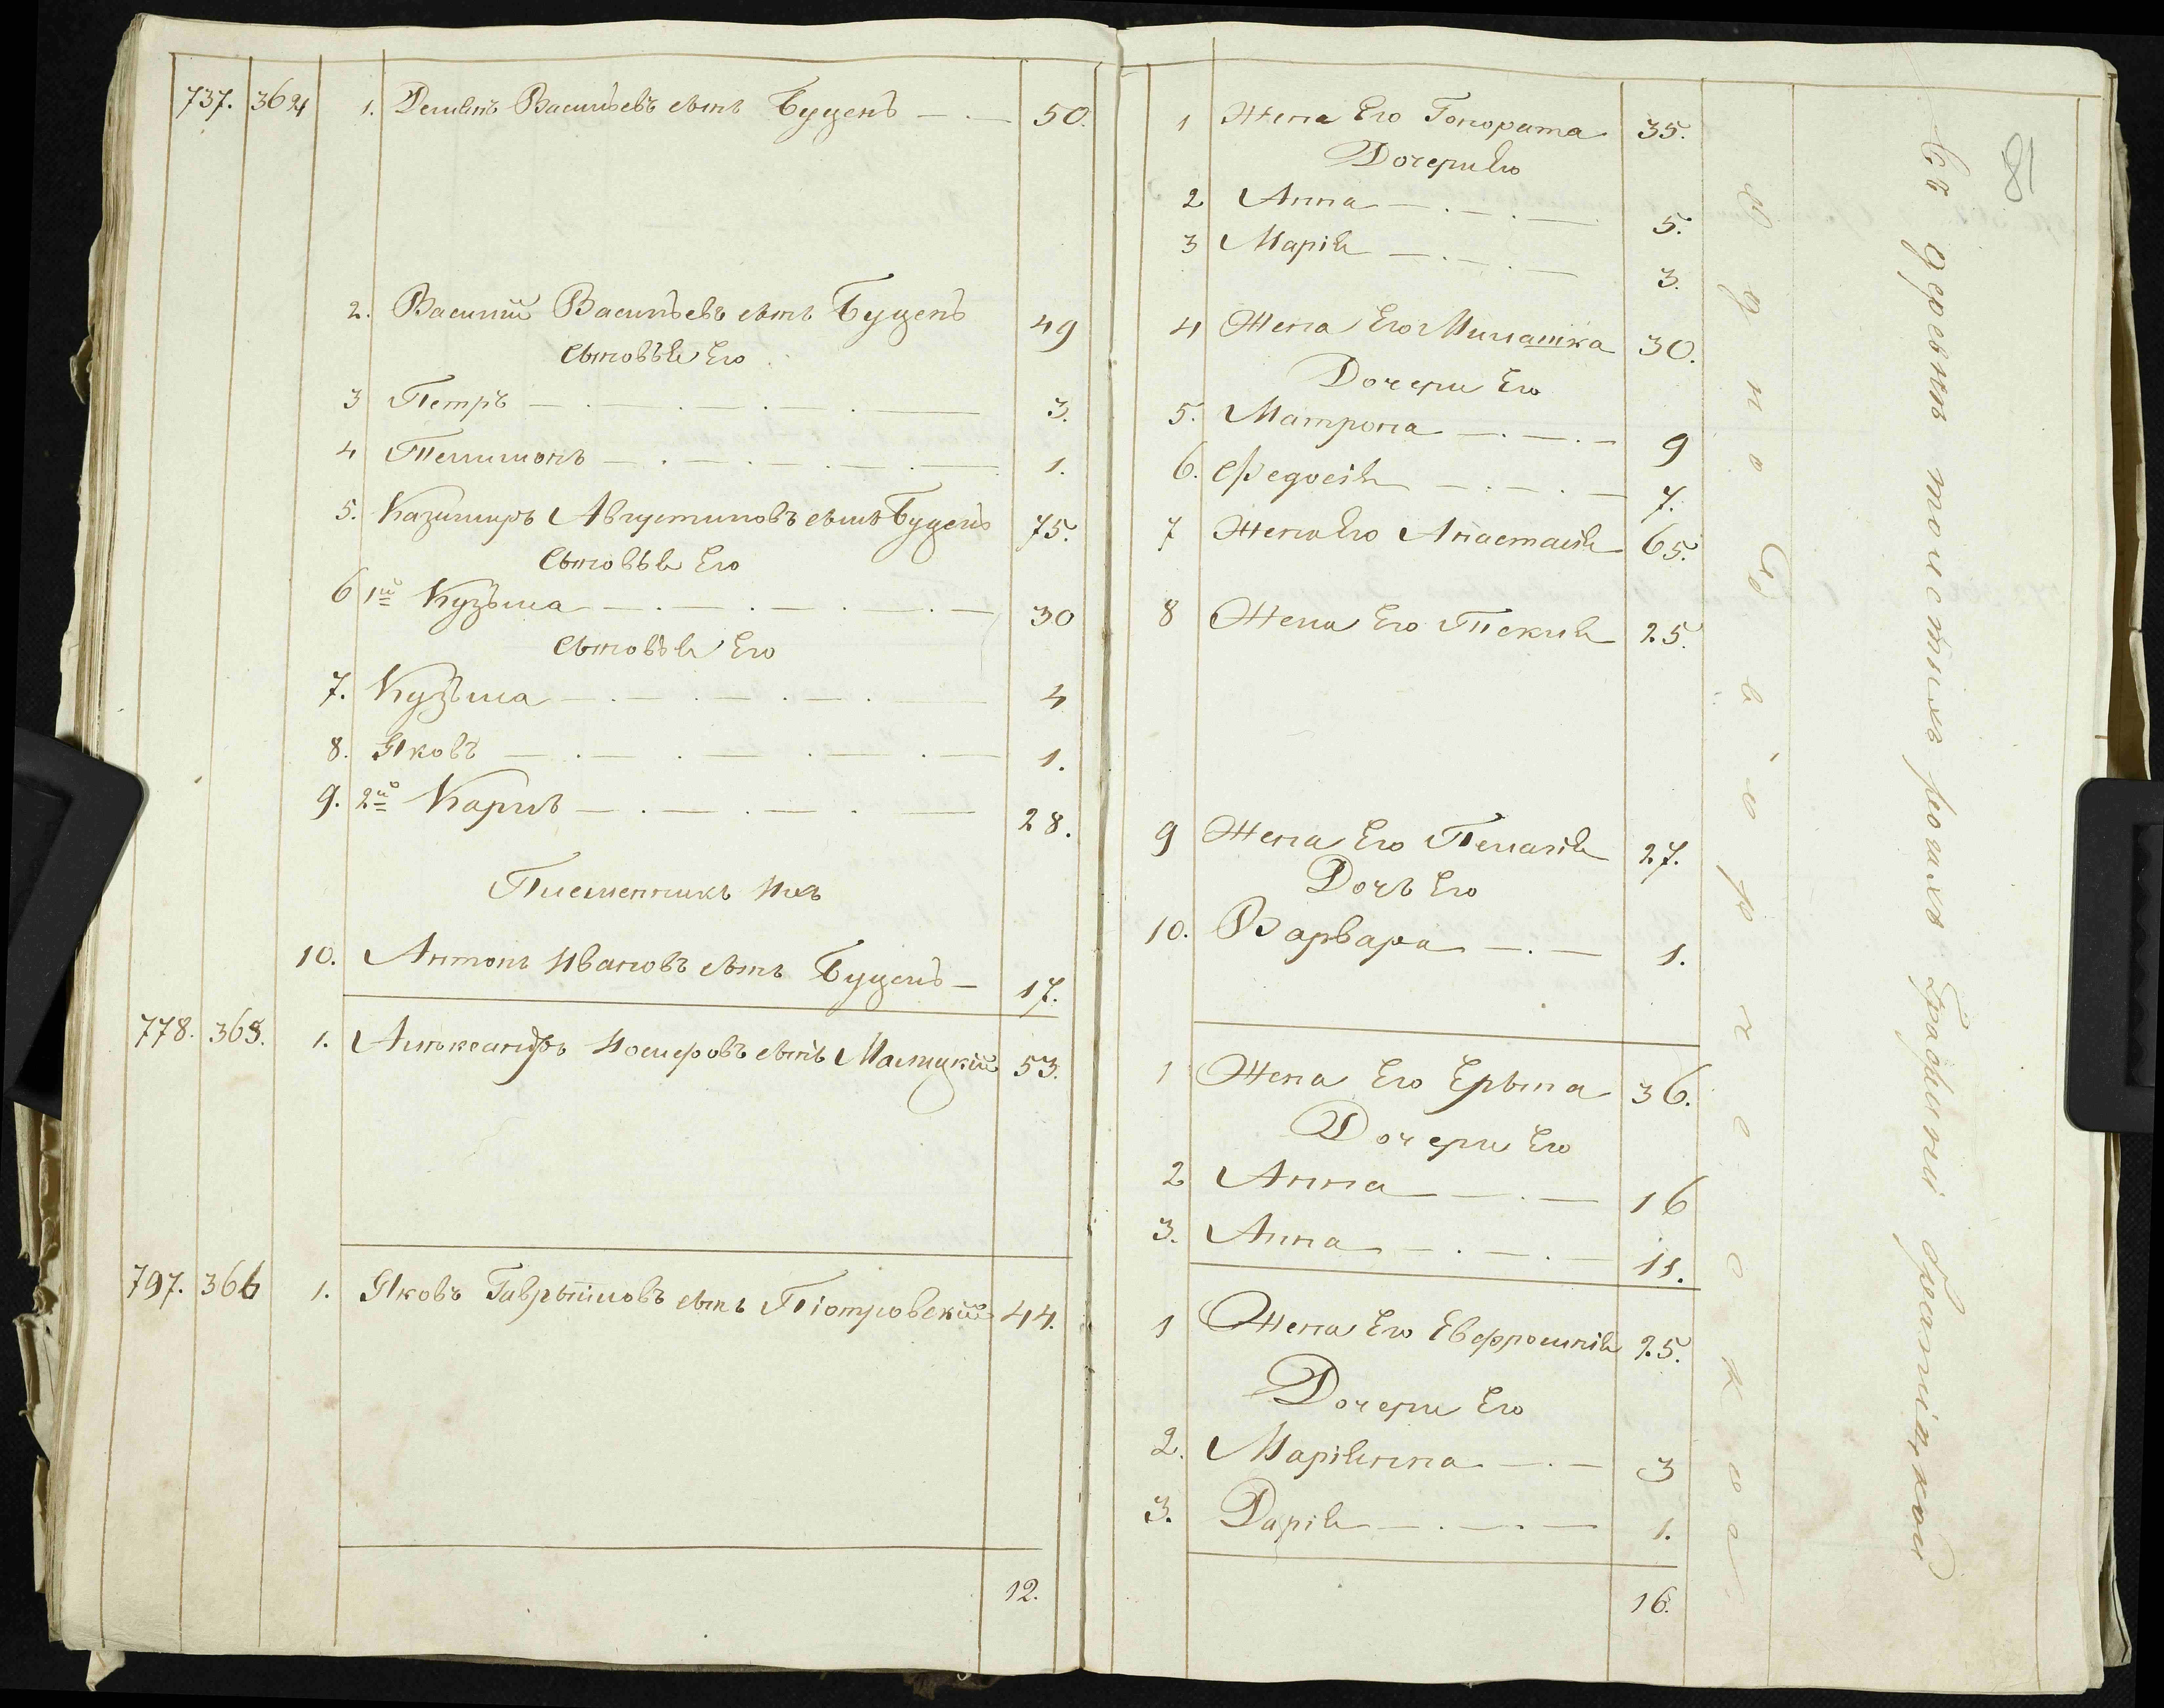 737. 364 1. Демьянъ Васильевъ сынъ Буценъ — . — 50.
2. Василий Васильевъ сынъ Буценъ 49
сыновья Его
3 Петръ — . — . — . — . — 3.
4 Пилимонъ — . — . — . — . — 1.
5. Казимиръ Августиновъ сынъ Буценъ 75.
сыновья Его
6 1й Кузьма — . — . — . — . — 30
сыновья Его
7. Кузьма — . — . — . — . — 4
8. Яковъ — . — . — . — . — 1.
9. 2й Карпъ — . — . — . — 28.
Племенникъ Ихъ
10. Антонъ Ивановъ сынъ Буценъ — 17.
778. 365. 1. Алѣксандръ Иосифовъ сынъ 53.
797. 366 1. Яковъ Гаврыиловъ сынъ Піотровский 44.
12.
18
1 Жена Его Гонората 35.
Дочери Его
2 Анна — . — . — 5.
3 Марія — . — . — 3.
4 Жена Его 30.
Дочери Его
5. Матрона — . — . — 9
6. Федосія — . — . — 7.
7 Жена Его Анастасія 65.
8 Жена Его Текля 25.
9 Жена Его Пелагія 27.
Дочь Его
10. Варвара — . — 1.
1 Жена Его Ерына 36.
Дочери Его
2 Анна — . — 16
3. Анна — . — . — 11.
1 Жена Его Евфросинія 25.
Дочери Его
2. Маріянна — . — 3
3. Дарія — . — . — 1.
16.
Въ той